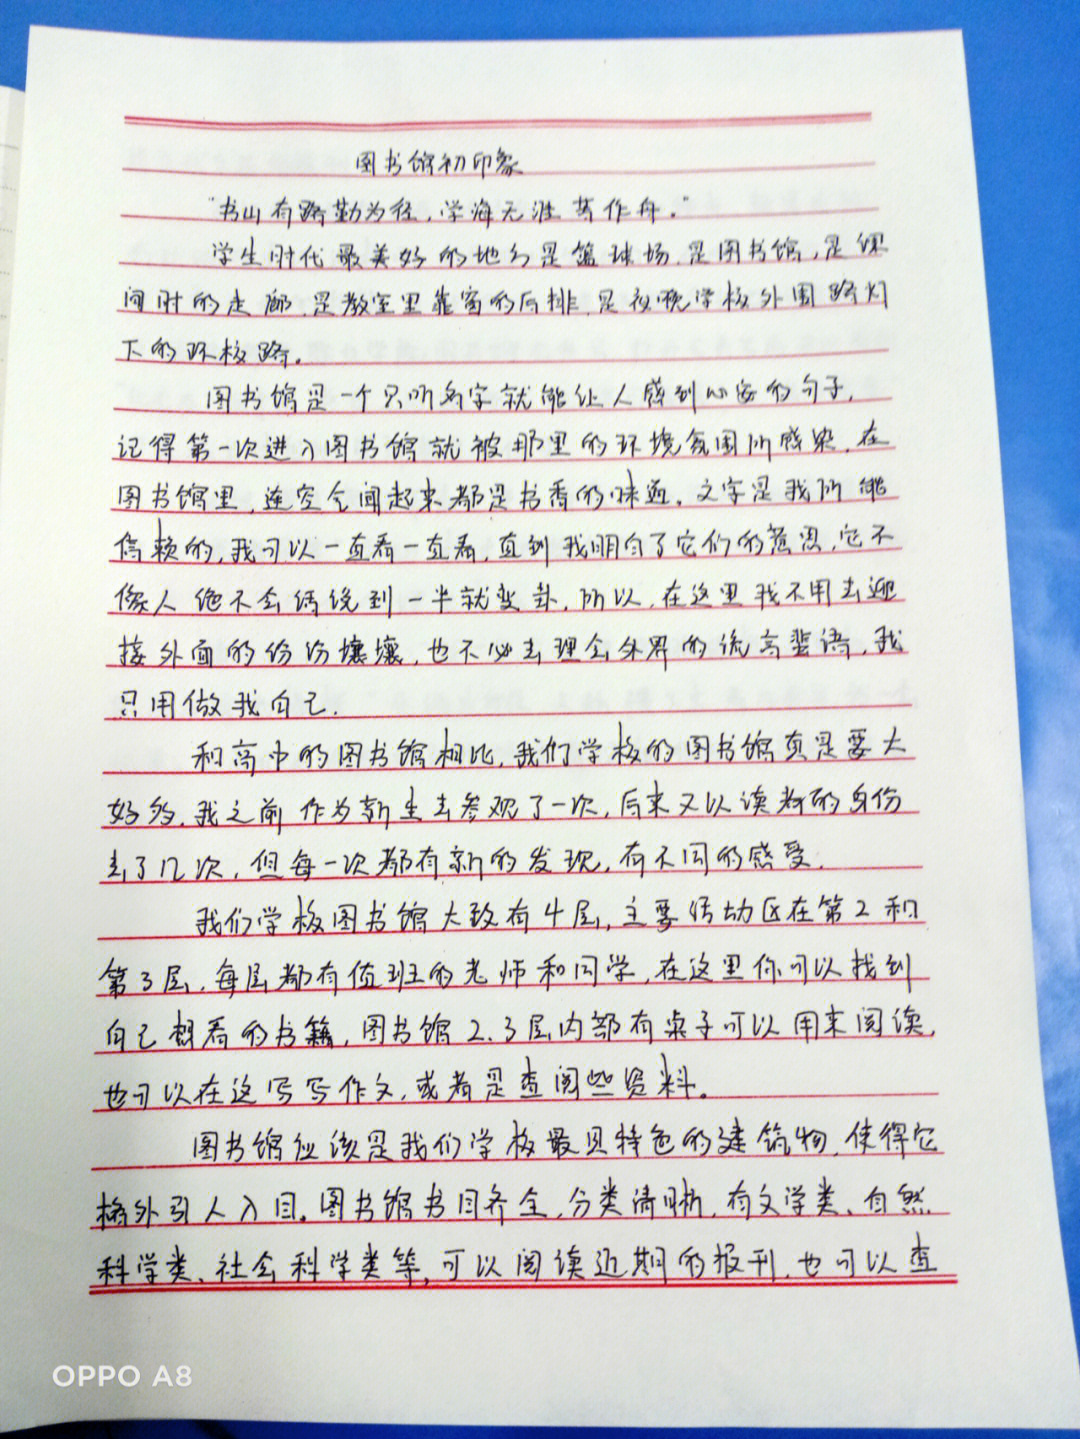 图书馆初印象
"书山有路勤为径,学海无涯苦作舟。"
学生时代最美好的地方是篮球场,是图书馆,是课
间时的走廊,是教室里靠窗的后排,是夜晚学校外围路灯
下的环校路。
图书馆是一个只听名字就能让人感到心安的句子,
记得第一次进入图书馆就被那里的环境氛围所感染,在
图书馆里,连空气闻起来都是书香的味道。文字是我所能
信赖的,我可以一直看一直看,直到我明白了它们的意思,它不
像人绝不会话说到一半就变卦,所以,在这里我不用去迎
接外面的纷纷壤壤,也不必去理会外界的流言蜚语,我
只用做我自己.
和高中的图书馆相比,我们学校的图书馆真是要大
好多,我之前作为新生去参观了一次,后来又以读者的身份
去了几次,但每一次都有新的发现,有不同的感受.
我们学校图书馆大致有4层,主要活动区在第2和
第3层,每层都有值班的老师和同学,在这里你可以找到
自己想看的书籍,图书馆2.3层内部有桌子可以用来阅读,
也可以在这写写作文,或者是查阅些资料。
图书馆应该是我们学校最具特色的建筑物,使得它
格外引人入目。图书馆书目齐全,分类清晰,有文学类、自然
科学类、社会科学类等,可以阅读近期的报刊,也可以查
OPPO A8